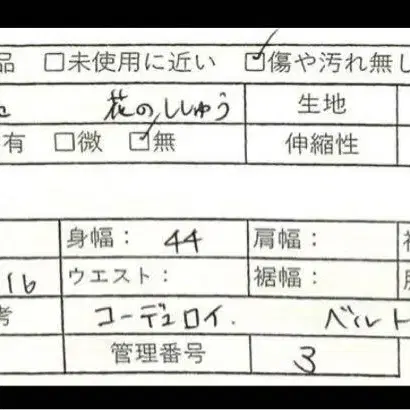 品 □未使用に近い ☑傷や汚れ無し
花のししゅう 生地
有 □微 ☑無 伸縮性
身幅： 44 肩幅：
16 ウエスト： 裾幅：
考 コーデュロイ. ベルト
管理番号 3